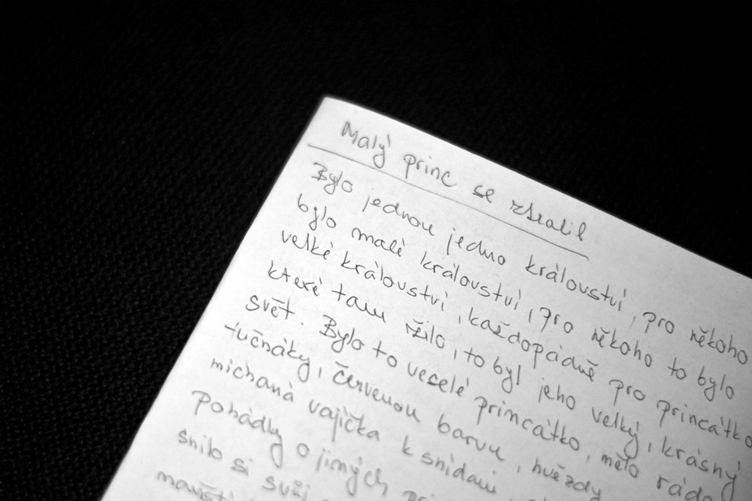 Malý princ se ztratil
Bylo jednou jedno království, pro někoho
bylo malé království, pro někoho to bylo
velké království, každopádně pro princátko
které tam žilo, to byl jeho velký, krásný
svět. Bylo to veselé princátko, mělo rádo
tučňáky, červenou barvu, hvězdy
míchaná vajíčka k snídani
pohádky o jiných
snilo si svůj